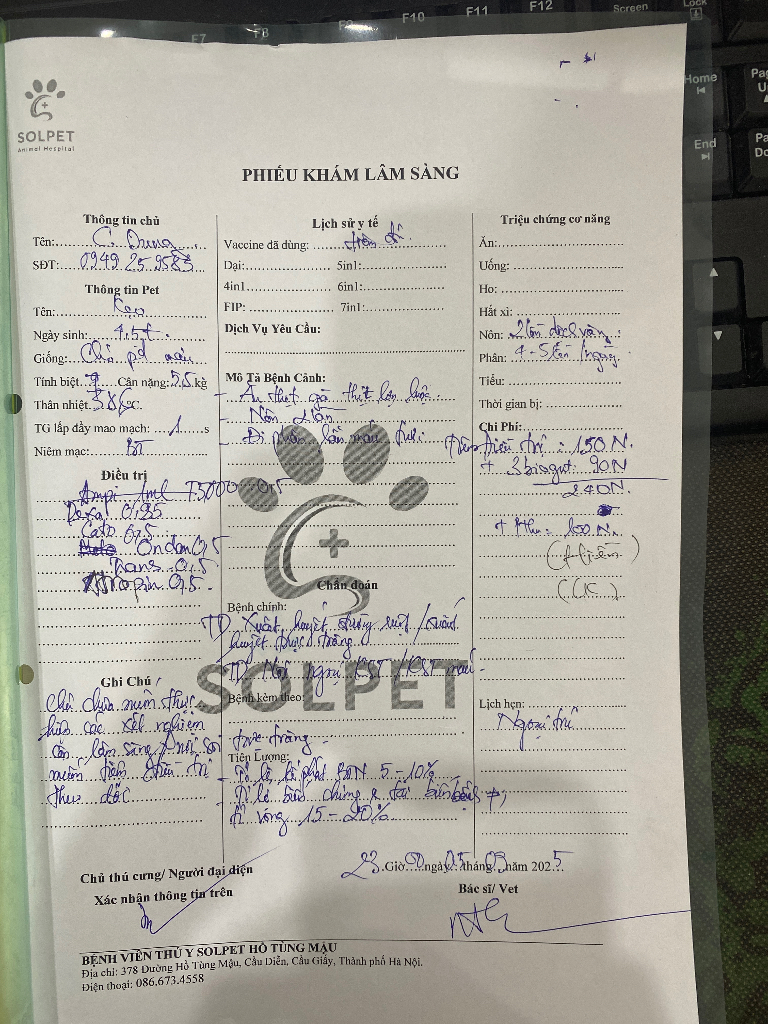 F7 F8 F9 F10 F11 F12 Screen Lock
Home
End
SOLPET
Animal Hospital
PHIẾU KHÁM LÂM SÀNG
Thông tin chủ
Tên: C. Dung
SĐT: 0949 25 9583
Thông tin Pet
Tên: Kẹo
Ngày sinh: 4,5t
Giống: Chó
Tính biệt: Cân nặng: 5,5 kg
Thân nhiệt: 38,6 °C.
TG lấp đầy mao mạch: 1 s
Niêm mạc: BT
Điều trị
Ampi 1ml T5000 0,5
0,35
Cato 0,5
Ondan 0,5
Trans 0,5
Atropin 0,5
Ghi Chú
Chủ chưa muốn thực
hiện các xét nghiệm
cận lâm sàng
muốn tiêm điều trị
theo dõi
Lịch sử y tế
Vaccine đã dùng:
Dại: 5in1:
4in1 6in1:
FIP: 7in1:
Dịch Vụ Yêu Cầu:
Mô Tả Bệnh Cảnh:
- Ăn thịt gà, thịt lợn luộc
- Nôn 2 lần
- Đi phân lẫn máu tươi
Chẩn đoán
Bệnh chính:
TD Xuất huyết đường ruột / xuất
huyết trực tràng
TD KST / KST máu
SOLPET
Bệnh kèm theo:
trực tràng
Tiên Lượng:
- Tỉ lệ 5-10%
- Tỉ lệ biến chứng
tử vong 15-20%
Triệu chứng cơ năng
Ăn:
Uống:
Ho:
Hắt xì:
Nôn: 2 lần dịch vàng
Phân: 4-5 lần /ngày
Tiểu:
Thời gian bị:
Chi Phí:
Tiêm điều trị: 150 N.
+ 3 biogut 90N
240N.
+ 100 N.
(CK)
Lịch hẹn:
Ngoại trú
23 Giờ 00 ngày 05 tháng 03 năm 2025
Chủ thú cưng/ Người đại diện
Xác nhận thông tin trên
Bác sĩ/ Vet
BỆNH VIỆN THÚ Y SOLPET HỒ TÙNG MẬU
Địa chỉ: 378 Đường Hồ Tùng Mậu, Cầu Diễn, Cầu Giấy, Thành phố Hà Nội.
Điện thoại: 086.673.4558